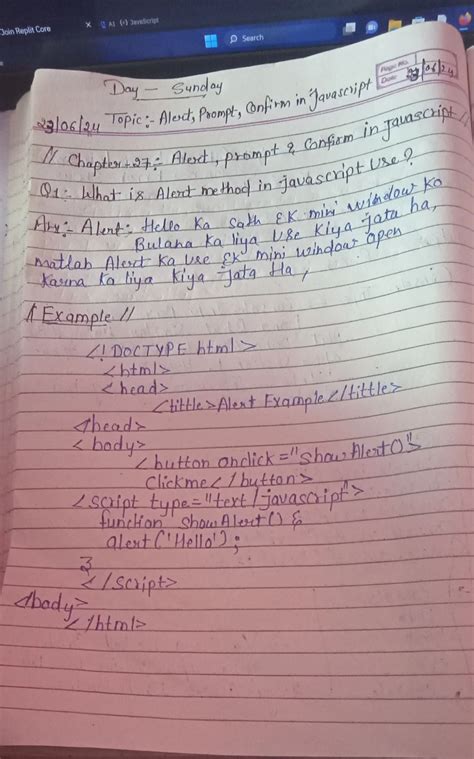 Join Replit Core
JavaScript
Search
Day - Sunday
Page No.
Date 23/06/24
23/06/24 Topic:- Alert, Prompt, Confirm in Javascript
// Chapter-27:- Alert, prompt & Confirm in Javascript //
Q1:- What is Alert method in javascript Use?
Ans:- Alert:- Hello Ka Sath EK mini window ko
Bulana Ka liya Use Kiya Jata ha,
matlab Alert Ka Use EK mini window open
Karna Ka liya Kiya Jata Ha,
Example //
<!DOCTYPE html>
<html>
<head>
<tittle>Alert Example</tittle>
</head>
<body>
<button onclick="showAlert()">
Clickme</button>
<script type="text/javascript">
function showAlert() {
alert('Hello');
}
</script>
</body>
</html>